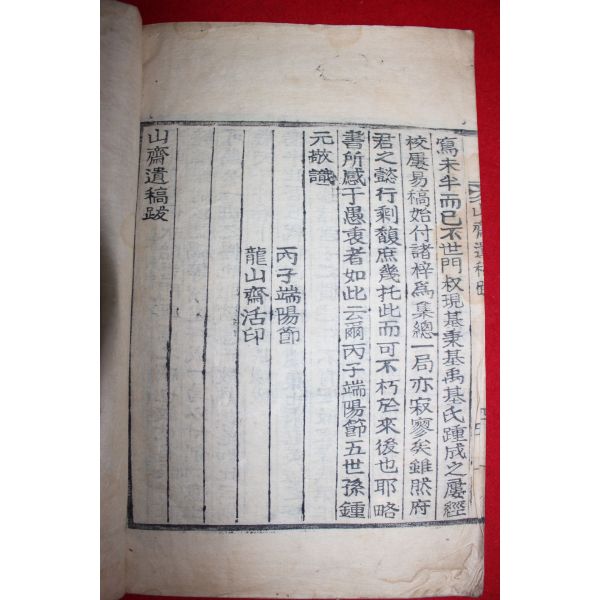 寫未半而已不世門叔現基秉基禹基氏踵成之屢經
校屢易稿始付諸梓為集總一局亦寂寥矣雖然府
君之懿行剩馥庶幾托此而可不朽於來後也耶略
書所感于愚衷者如此云爾丙子端陽節五世孫鍾
元敬識
丙子端陽節
龍山齋活印
山齋遺稿跋